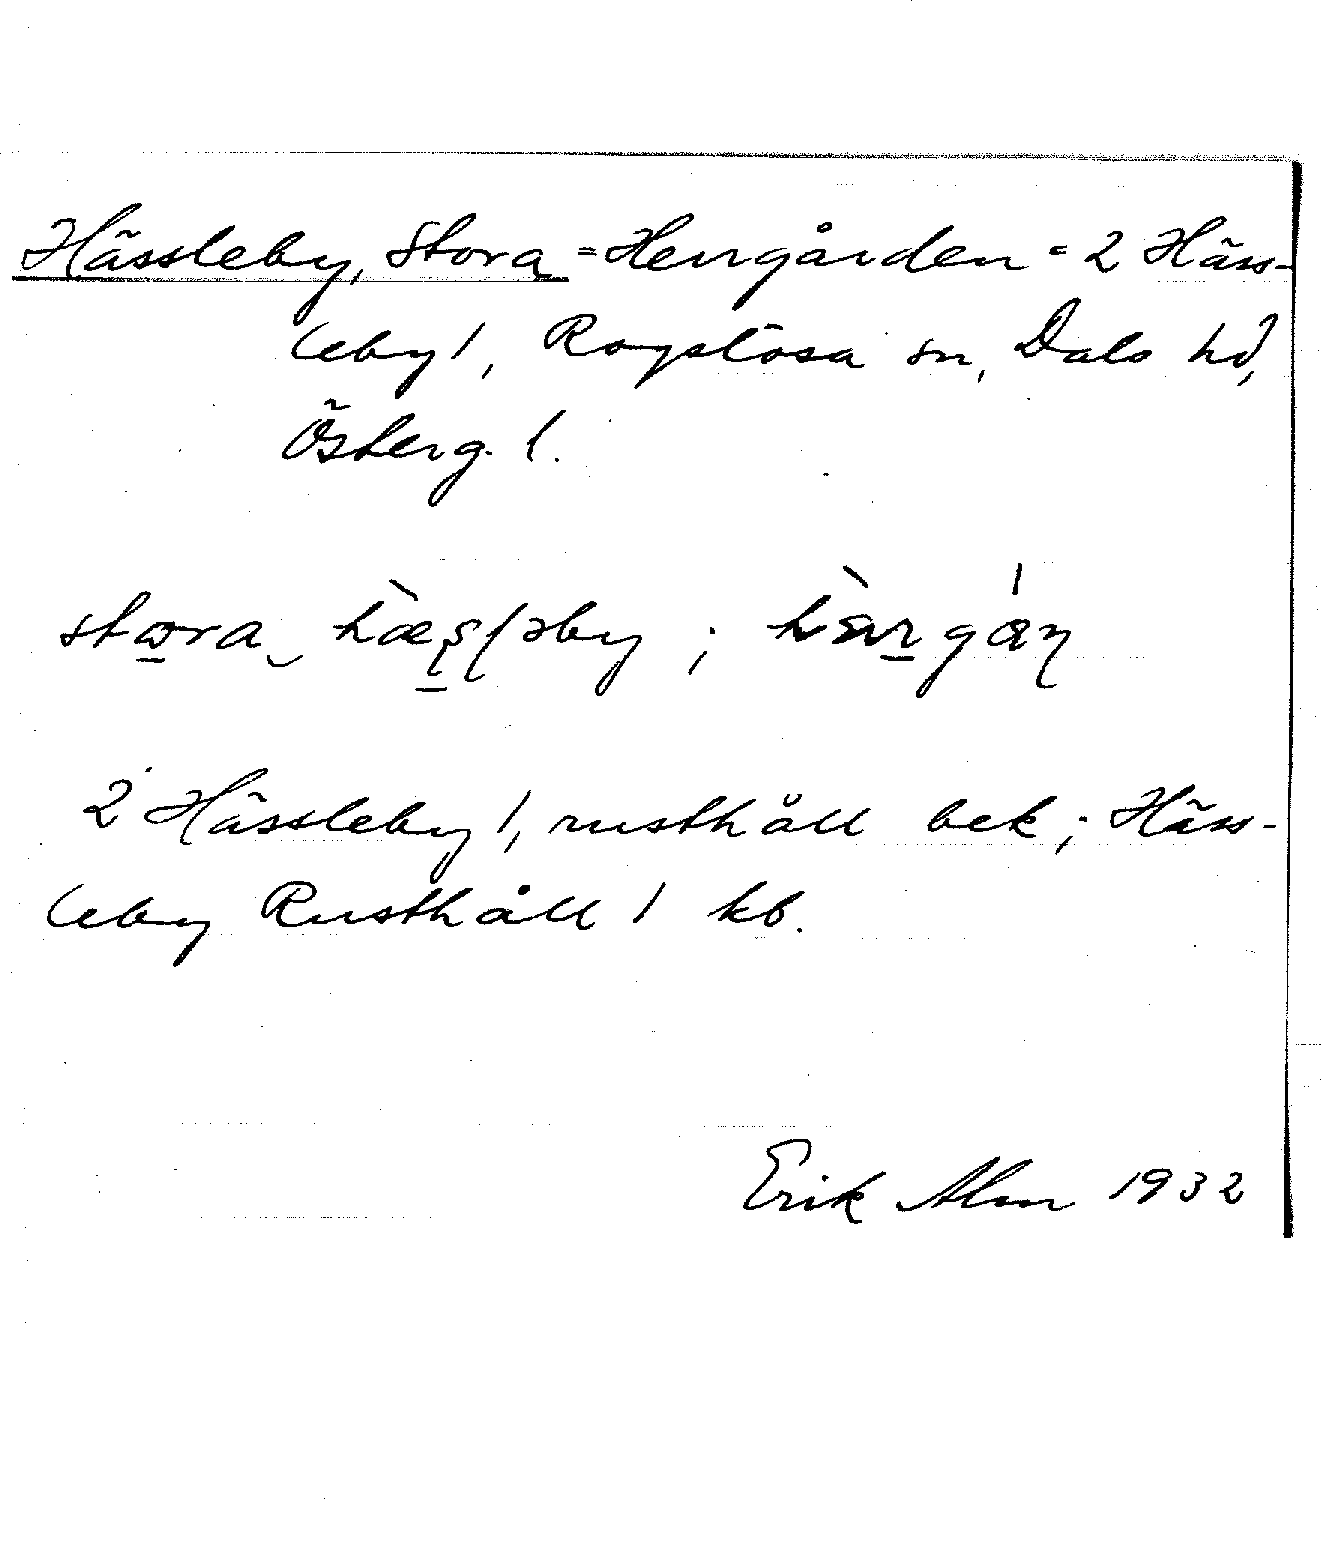 Hässleby, Stora = Herrgården = 2 Häss-
leby 1, Rogslösa sn, Dals hd,
Österg. l.
stora hæsləby ;
2 Hässleby 1, rusthåll bek; Häss-
leby Rusthåll 1 kb.
Erik Alm 1932